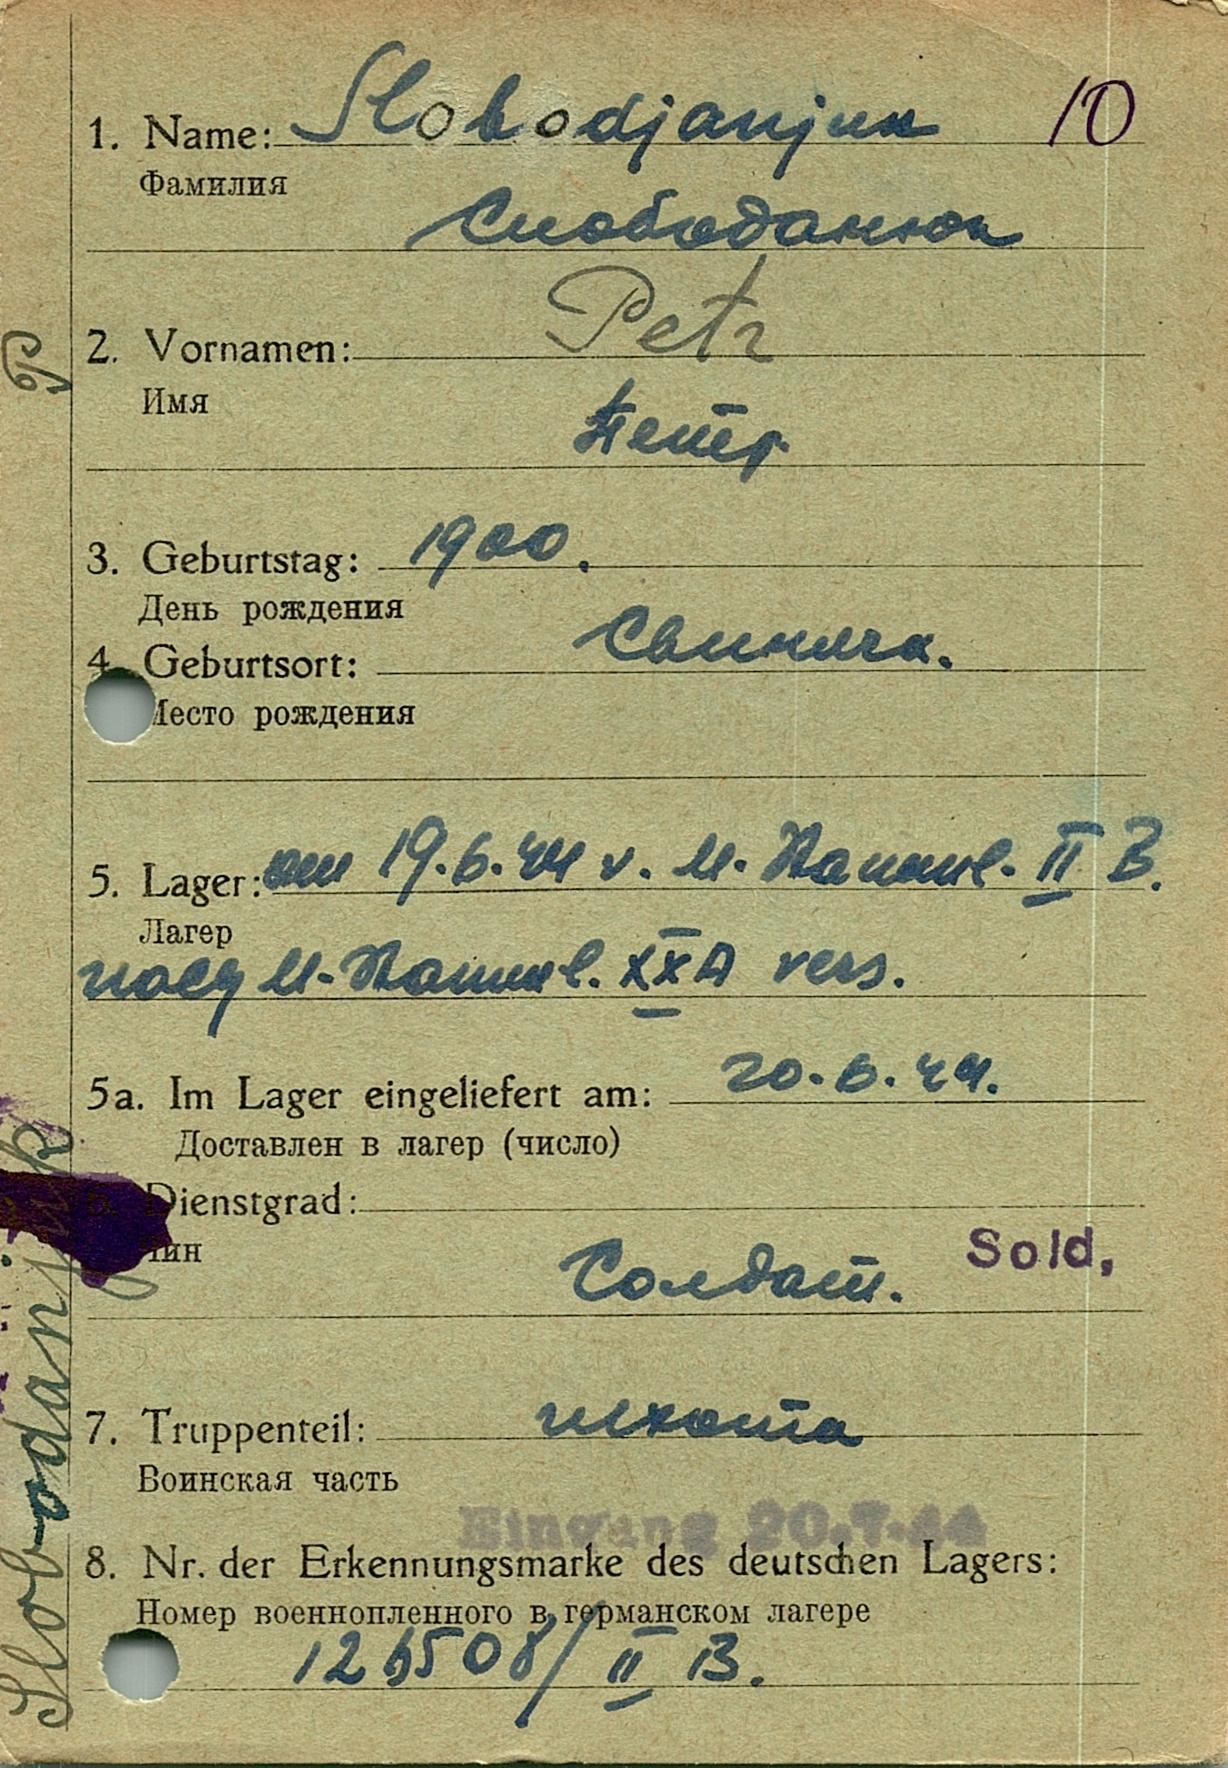 1. Name: Slobodjanjuk 10
Фамилия
Слободанюк
2. Vornamen: Petr
Имя
Петр.
3. Geburtstag: 1900.
День рождения
4. Geburtsort: Свинячк.
Место рождения
5. Lager: am 19.6.44 v. M. Stamml. II B.
Лагер
nach M-Stamml. XXA vers.
5a. Im Lager eingeliefert am: 20.6.44.
Доставлен в лагер (число)
6. Dienstgrad:
Чин
Солдат. Sold.
7. Truppenteil: пехота
Воинская часть
Eingang 20.7.44
8. Nr. der Erkennungsmarke des deutschen Lagers:
Номер военнопленного в германском лагере
126508/II B.
Slobodanjuk P